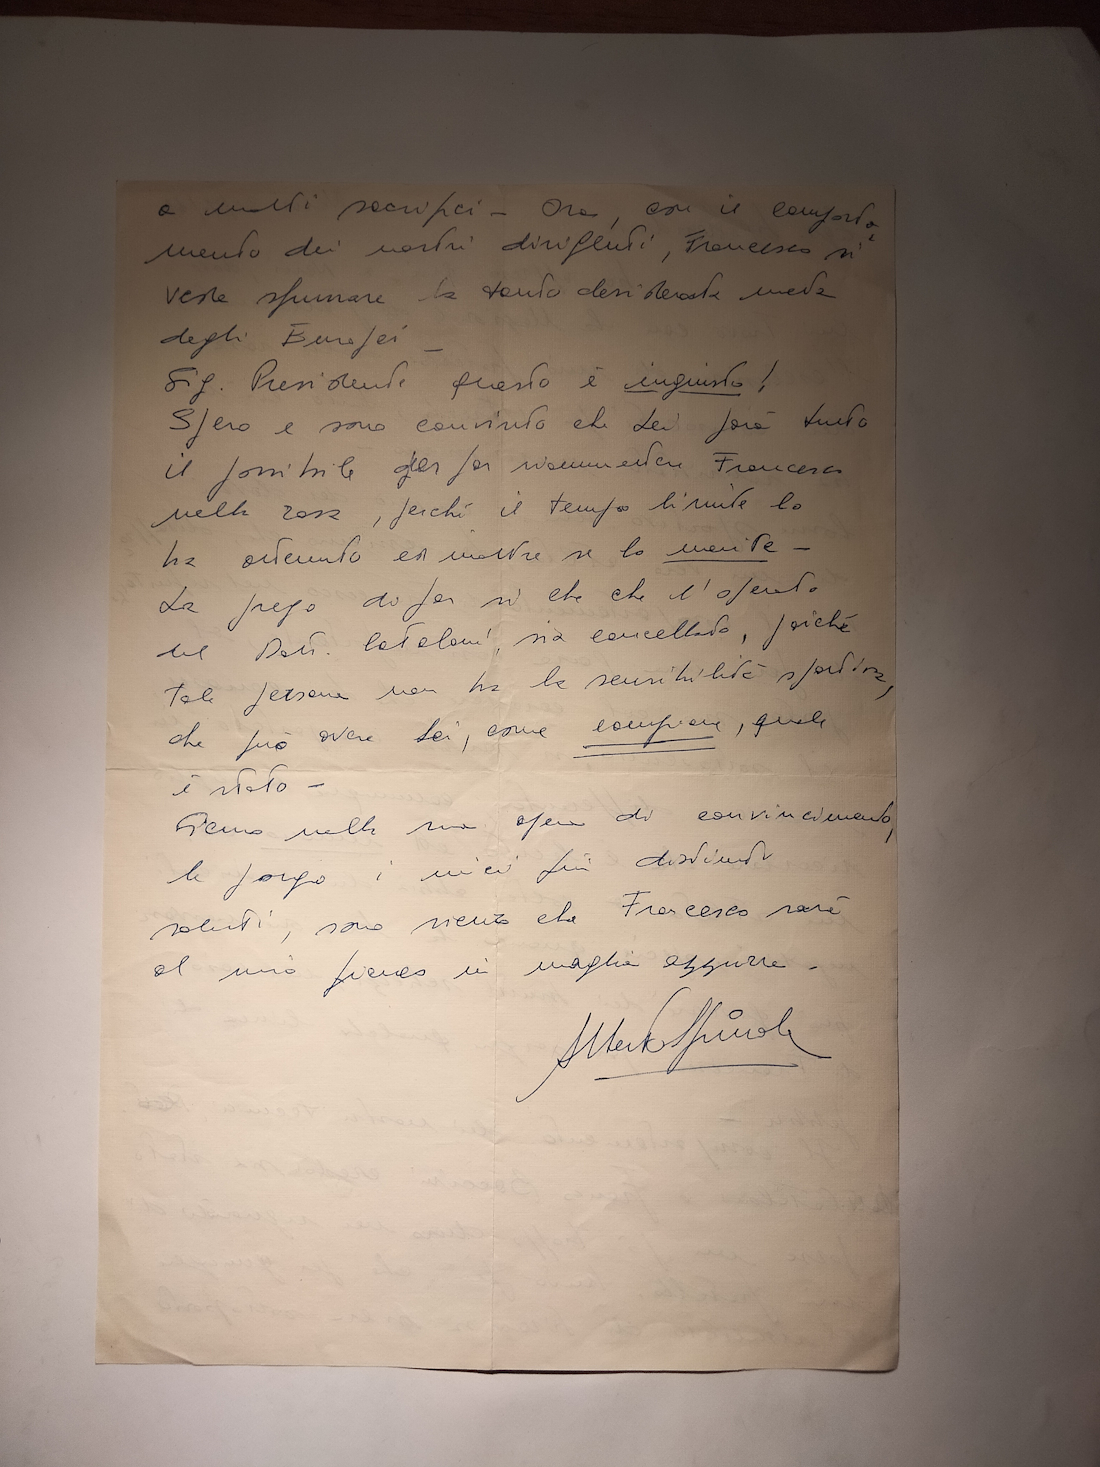 a molti sacrifici – Ora, con il comporta
mento dei nostri dirigenti, Francesco si
vede sfumare la tanto desiderata meta
degli Europei –
Sig. Presidente questo è ingiusto!
Spero e sono convinto che Lei farà tutto
il possibile per far riammettere Francesco
nella rosa, perché il tempo limite lo
ha ottenuto ed inoltre se lo merita –
La prego di far si che che l'operato
del Dott. Catalani, sia cancellato, poiché
tale persona non ha la sensibilità sportiva,
che può avere Lei, come campione, quale
è stato –
nella sua opera di convincimento,
le porgo i miei più distinti
saluti, sono sicuro che Francesco sarà
al mio fianco in maglia azzurra.
Alberto Spinola